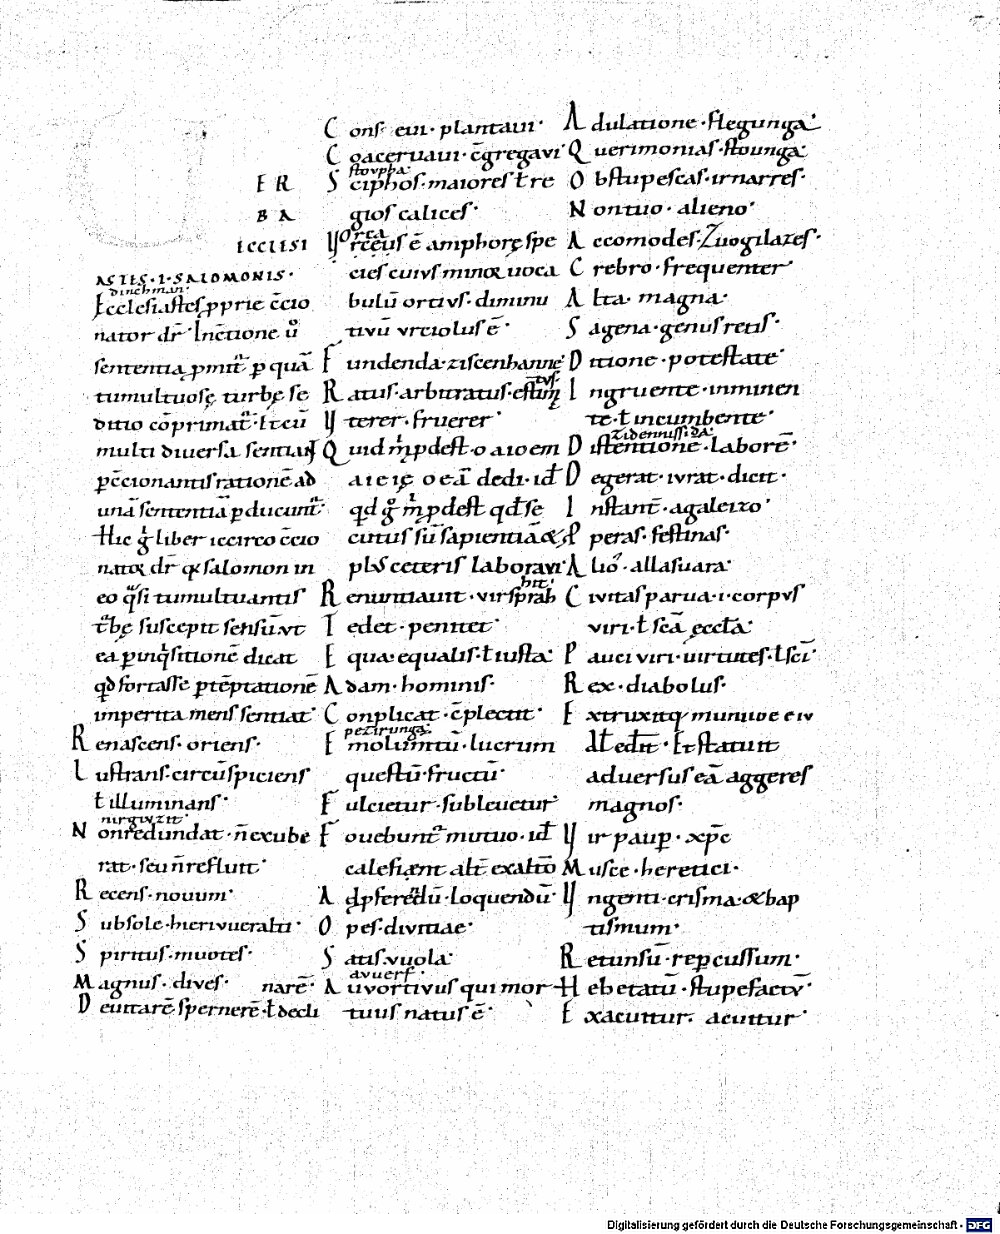 ER
BA
ECCLESI
ASTES · I · SALOMONIS ·
dinchman
Ecclesiastes p̱prie c̄cio
nator dr̄ · In c̄tione
sententia p qua
tumultuosę turbę se
ditio cōprimat̄ · ł cū
multi diuersa sentian
p c̄cionantis rationē ad
unā sententiā p ducunt̄
Hic gͥ liber iccirco c̄cio
nator dr̄ salomon in
eo qͣsi tumultuantis
suscepit sensū · vt
ea p inqͥsitionē dicat
qd fortasse p tēptationē
imperita mens sentiat ·
Renascens · oriens ·
Lustrans · circūspiciens
ł illuminans ·
nirgiuzit
Non redundat · n̄ exube
rat · seu n̄ refluit ·
Recens · nouum ·
Sub sole · hierivueralti ·
Spiritus · muotes ·
Magnus · dives ·
Deuitarē spernerē · ł decli
narē ·
Cons eui · plantaui ·
Coaceruaui · c̄gregavi
stovpha
Sciphos · maiores ł re
gios calices ·
orca
Vrceus ē amphorę spe
cies cuius minor uoca
bulū ortivs · diminu
tivū vrciolus ē ·
Fundenda · ziscenhanne
Ratus · arbitratus · estim
tvs ·
Vterer · fruerer ·
Quid
dedi · id
qd qd se
cutus sū sapientiā &
plvs ceteris laboravi ·
Renuntiauit · virsprah
hit ·
Tedet · penitet ·
Equa · equalis · ł iusta ·
Adam · hominis ·
Conplicat · c̄plectit ·
pezirunga ·
Emolumtū · lucrum
questū · fructū ·
Fulcietur · subleuetur ·
Fouebunt̄ mutuo · id
calefiænt alt̄ ex alt̄o
loquendū ·
Opes · divitiae ·
Satis · vuola ·
avuerf ·
Auvortivus qui mor
tuus natus ē ·
Adulatione · flegunga ·
Querimonias · stounga ·
Obstupescas · irnarres ·
Non tuo · alieno ·
Accomodes · Zuogilazes ·
Crebro · frequenter ·
Alta · magna ·
Sagena · genus retis ·
Ditione · potestate ·
Ingruente · inminen
te · ł incumbente ·
zidennussida ·
Distentione · laborē ·
Degerat · ivrat · dicit ·
Instant̄ · agaleizo ·
Pperas · festinas ·
Alio · allasuara ·
Civitas parua · i · corpvs
viri · ł scā ęccła ·
Pauci viri · uirtutes · ł sci ·
Rex · diabolus ·
Extruxitq munitiōe
statuit
adversus eā aggeres
magnos ·
Vir paup · xpc
Musce · heretici ·
Vngenti · crisma · & bap
tismum ·
Retunsū · repercussum ·
Hebetatū · stupefactv̄ ·
Exacuitur · acuitur ·
Digitalisierung gefördert durch die Deutsche Forschungsgemeinschaft - DFG